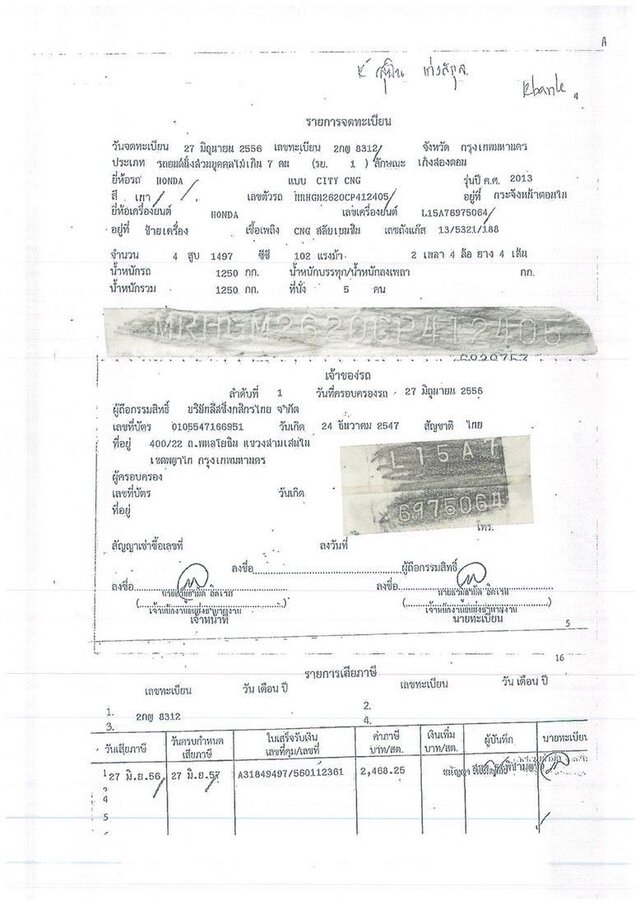 A
Kbank
รายการจดทะเบียน
วันจดทะเบียน 27 มิถุนายน 2556 เลขทะเบียน 2กญ 8312 จังหวัด กรุงเทพมหานคร
ประเภท รถยนต์นั่งส่วนบุคคลไม่เกิน 7 คน (รย. 1 ) ลักษณะ เก๋งสองตอน
ยี่ห้อรถ HONDA แบบ CITY CNG รุ่นปี ค.ศ. 2013
สี เทา เลขตัวรถ MRHGM2620CP412405 อยู่ที่ กระจังหน้าตอนใน
ยี่ห้อเครื่องยนต์ HONDA เลขเครื่องยนต์ L15A76975064
อยู่ที่ ซ้ายเครื่อง เชื้อเพลิง CNG สลับเบนซิน เลขถังแก๊ส 13/5321/188
จำนวน 4 สูบ 1497 ซีซี 102 แรงม้า 2 เพลา 4 ล้อ ยาง 4 เส้น
น้ำหนักรถ 1250 กก. น้ำหนักบรรทุก/น้ำหนักลงเพลา กก.
น้ำหนักรวม 1250 กก. ที่นั่ง 5 คน
MRHGM2620CP412405
เจ้าของรถ
ลำดับที่ 1 วันที่ครอบครองรถ 27 มิถุนายน 2556
ผู้ถือกรรมสิทธิ์ บริษัทลีสซิ่งกสิกรไทย จำกัด
เลขที่บัตร 0105547166951 วันเกิด 24 ธันวาคม 2547 สัญชาติ ไทย
ที่อยู่ 400/22 ถ.พหลโยธิน แขวงสามเสนใน
เขตพญาไท กรุงเทพมหานคร
L15A7
6975064
ผู้ครอบครอง
เลขที่บัตร วันเกิด
ที่อยู่
โทร.
สัญญาเช่าซื้อเลขที่ ลงวันที่
ลงชื่อ ผู้ถือกรรมสิทธิ์
ลงชื่อ ลงชื่อ
เจ้าหน้าที่ นายทะเบียน
5
16
รายการเสียภาษี
เลขทะเบียน วัน เดือน ปี เลขทะเบียน วัน เดือน ปี
1. 2กญ 8312 2.
3. 4.
วันเสียภาษี วันครบกำหนดเสียภาษี ใบเสร็จรับเงิน เลขที่คุม/เลขที่ ค่าภาษี บาท/สต. เงินเพิ่ม บาท/สต. ผู้บันทึก นายทะเบียน
1 27 มิ.ย.56 27 มิ.ย.57 A31849497/560112361 2,468.25
4
5